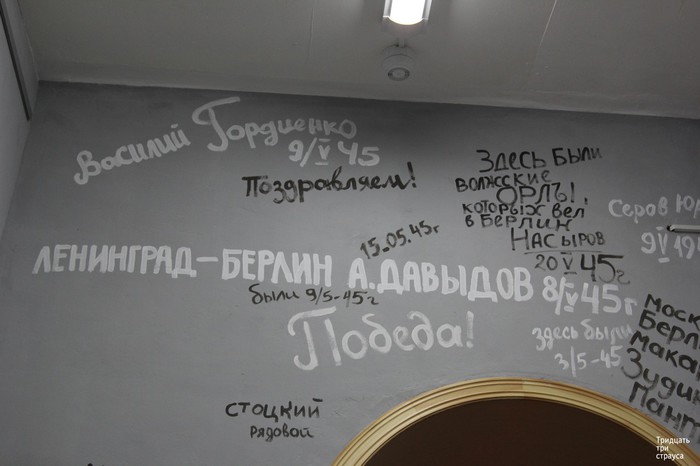 Василий Гордиенко
9/V 45
Поздравляем!
Здесь были
волжские
орлы,
которых вел
в Берлин
Насыров
20 V 45г
Серов Ю
9 V 19
15.05.45г
ЛЕНИНГРАД–БЕРЛИН А.ДАВЫДОВ 8/V 45г
были 9/5-45г
Победа!
здесь были
3/5-45
моск
Берл
мака
Зуди
Пант
стоцкий
рядовой
Тридцать
три
страуса